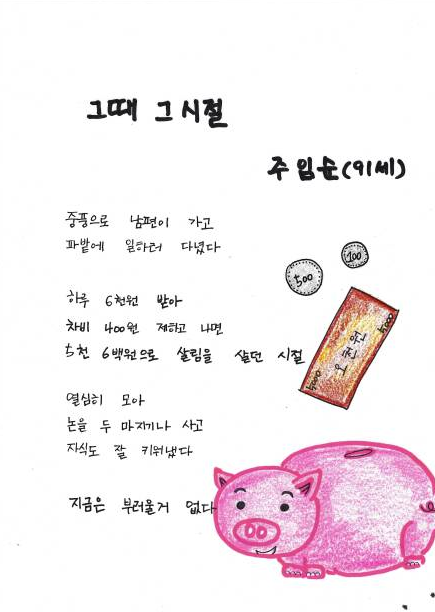 그때 그 시절
주임순(91세)
중풍으로 남편이 가고
파밭에 일하러 다녔다
500
100
하루 6천원 받아
차비 400원 제하고 나면
5천 6백원으로 살림을 살던 시절
5000
오천원
5000
열심히 모아
논을 두 마지기나 사고
자식도 잘 키워냈다
지금은 부러울거 없다